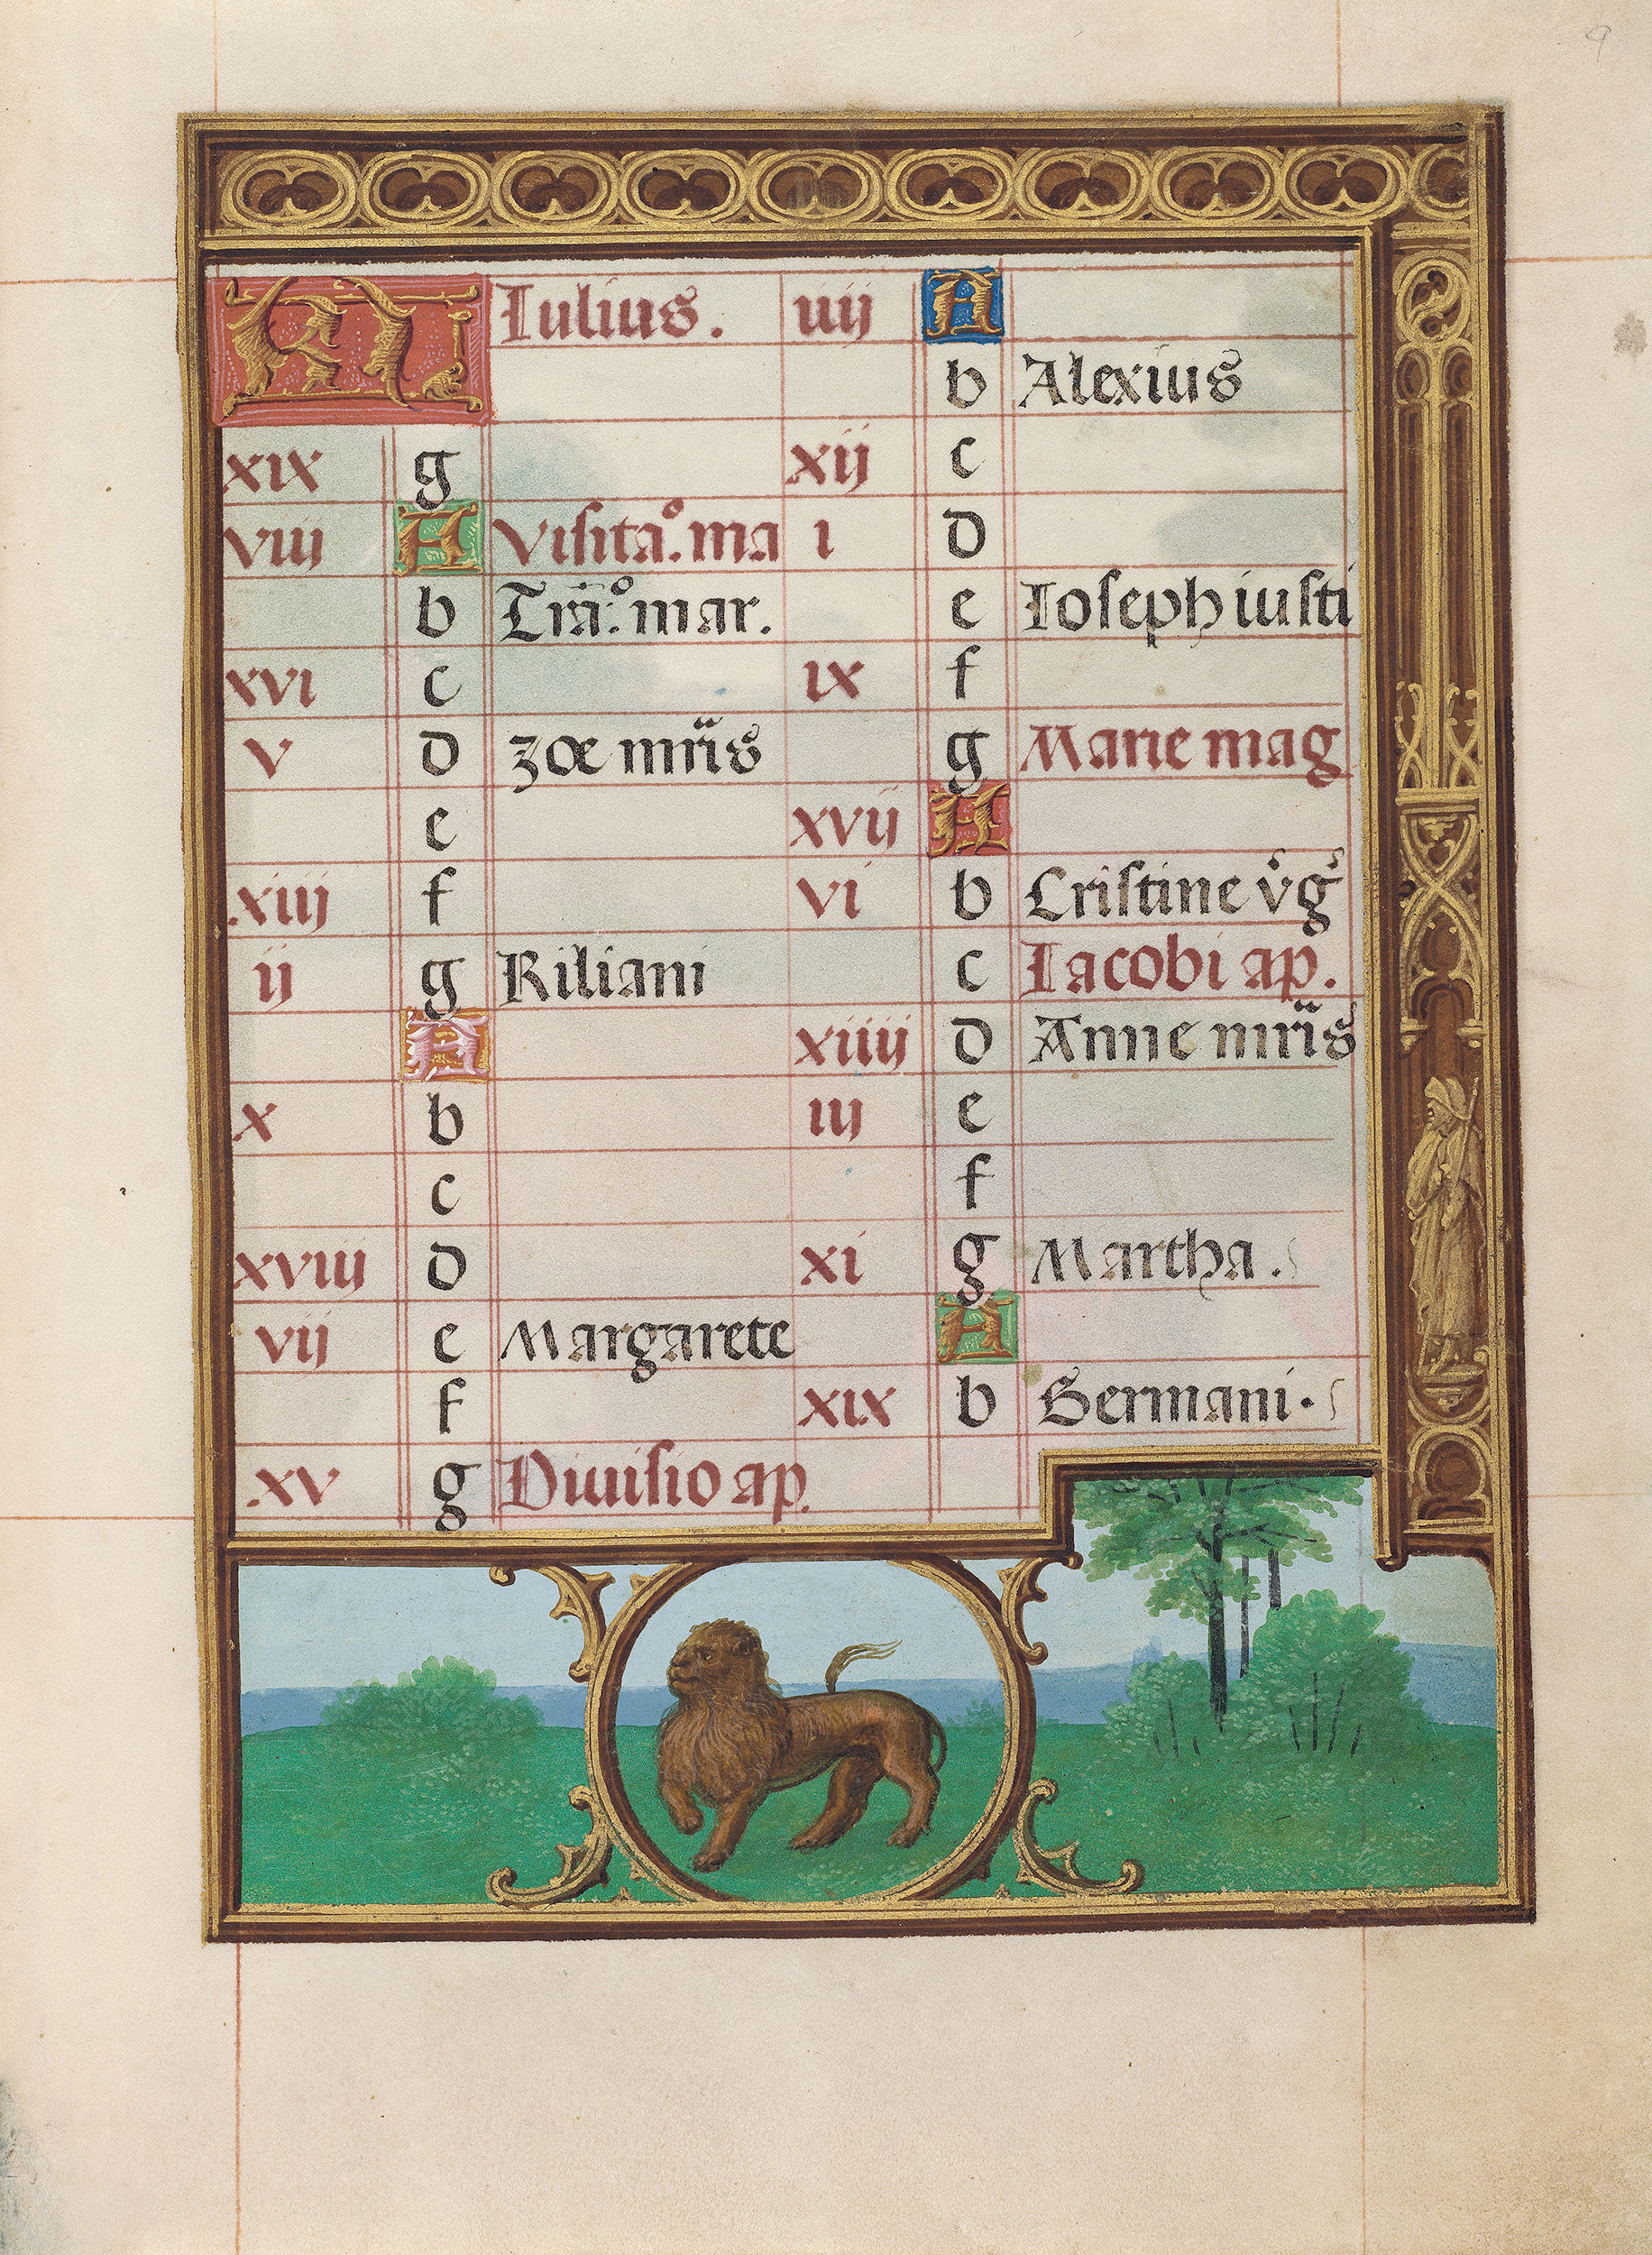 KL Iulius.
xix g
viii A Visita.º ma
b Trā.º mar.
xvi c
v d zoe mr̄is
e
xiij f
ij g Kiliani
A
x b
c
xviij d
vij e Margarete
f
xv g Diuisio ap.
iiij A
b Alexius
xij c
i d
e Ioseph iusti
ix f
g Marie mag
xvij A
vi b Cristine v̊g̉
c Iacobi ap.
xiiij d Anne mr̄is
iij e
f
xi g Martha.
A
xix b Germani.
9